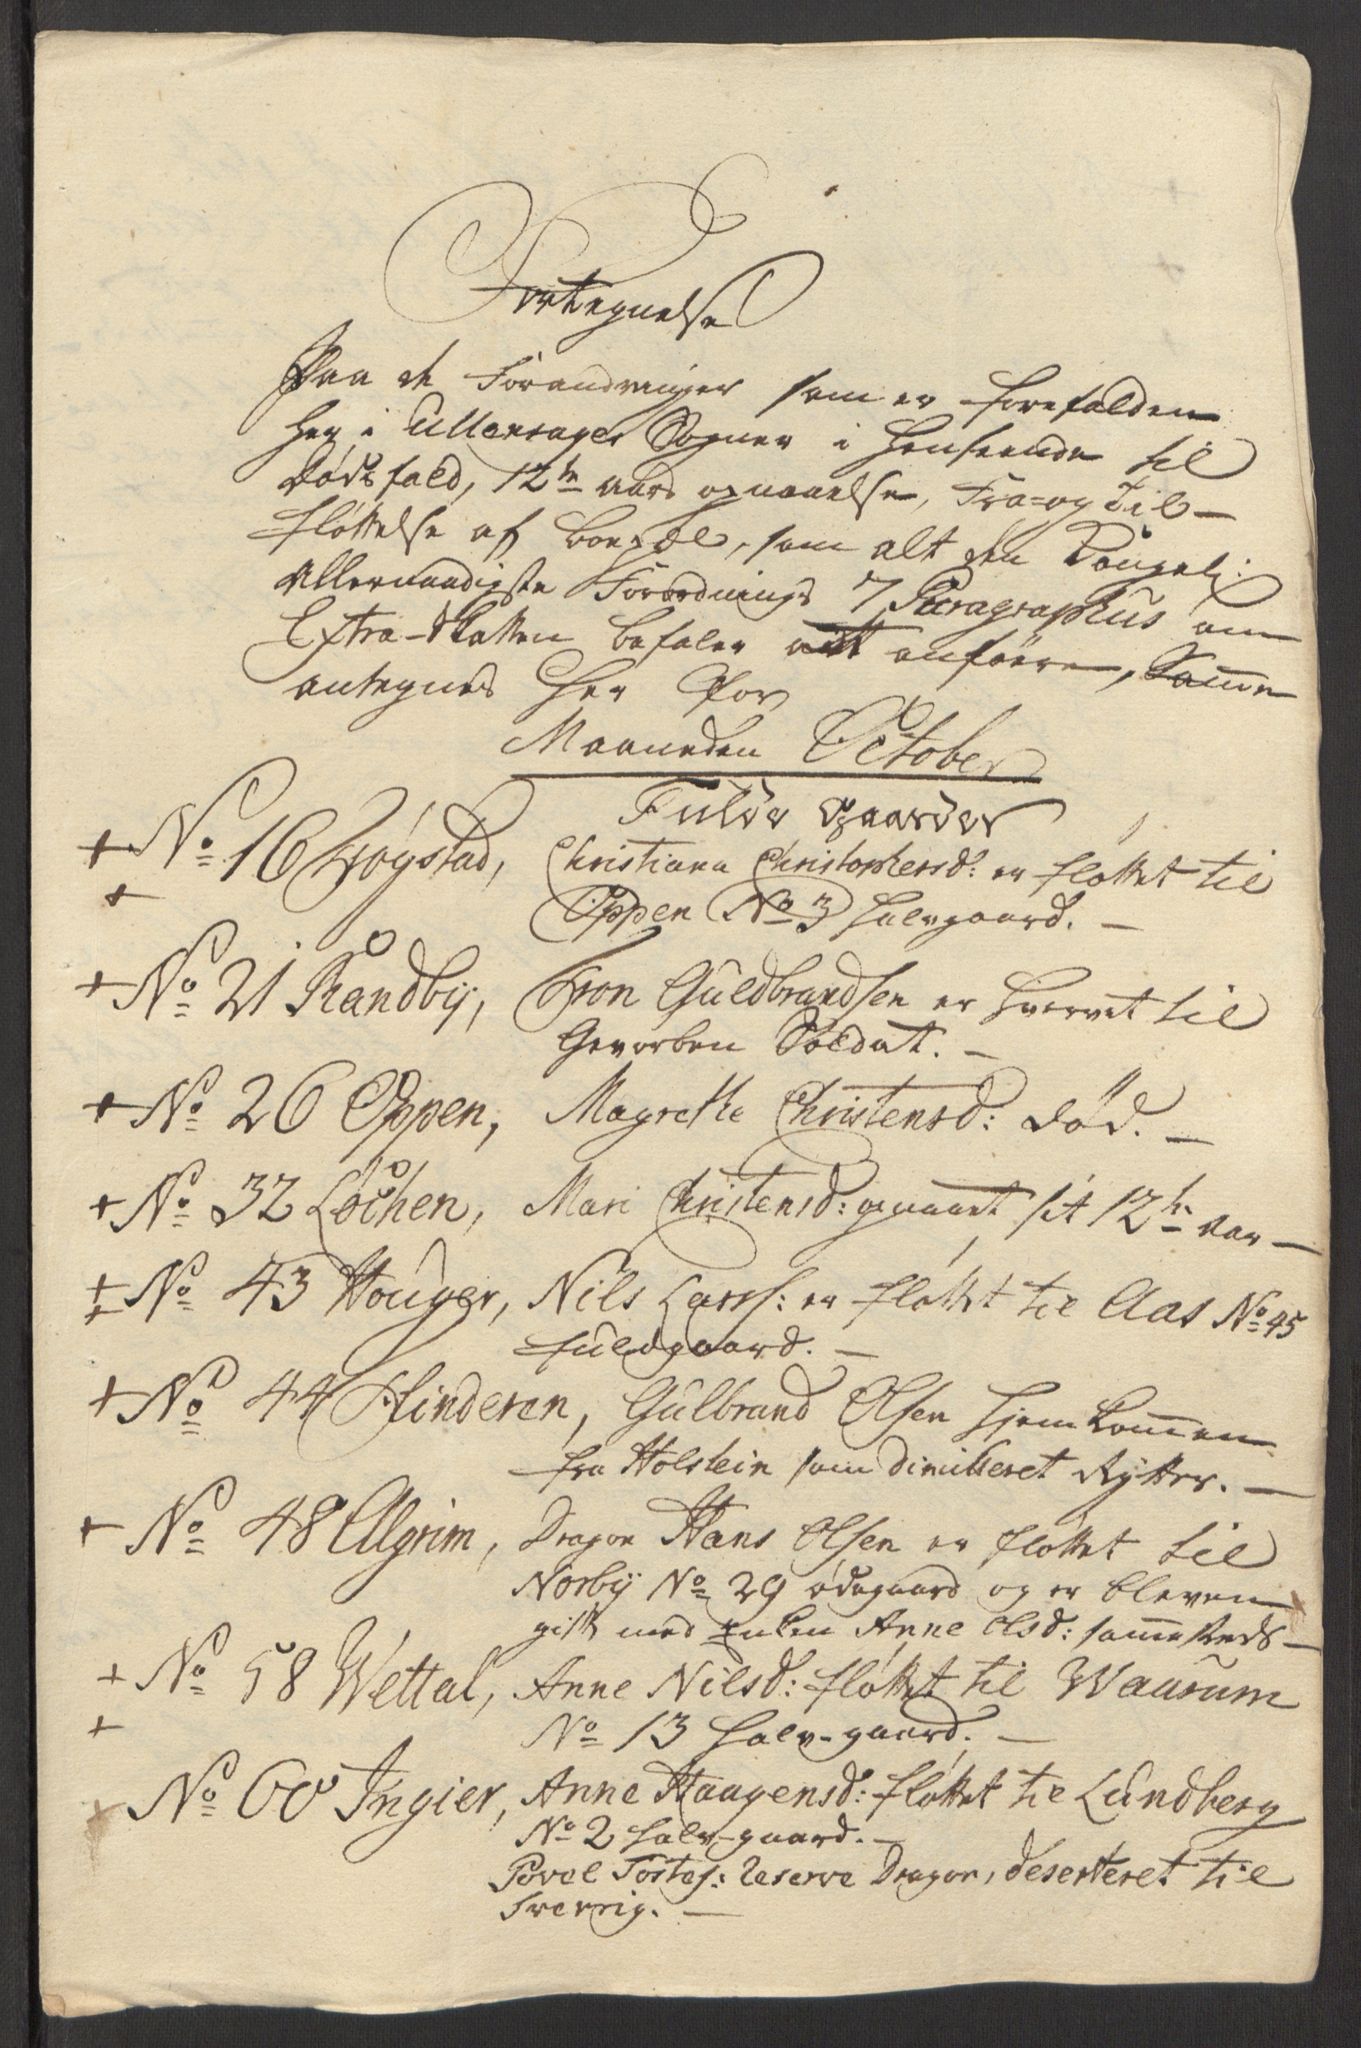 Fortegnelse
Paa de Forandringer som er forefalden
her i Ullensager Sogner i henseende til
dødsfald, 12te aars opnaaelse, Fra- og Til-
fløttelse af boepæl, som alt den Kongel:
Allernaadigste Forordnings 7 Paragraphus om
Extra-Skatten befaler at anføere, Samme
antegnes her for
Maaneden October
Fulde Gaarder
+ No 16 Høgstad, Christiana Christophersd: er fløttet til
+ Oppen No 3 halvgaard. —
+ No 21 Randby, Tron Guldbrandsen er hvervet til
Gevorben Soldat. —
+ No 26 Oppen, Magrethe Christensd: død. —
+ No 32 Løchen, Mari Christensd: opnaaet sit 12te aar —
+ No 43 Houger, Nils Larss: er fløttet til Aas No 45
+ fuldgaard. —
+ No 44 Hinderen, Gulbrand Olsen hjemkommen
fra Holstein som dimitteret Rytter. —
+ No 48 Algrim, Dragon Hans Olsen er fløttet til
Norby No 29 ødegaard og er bleven
gift med Enken Anne Olsd: sammesteds —
+ No 58 Wettal, Anne Nilsd: fløttet til Waurum
+ No 13 halv-gaard. —
+ No 60 Ingier, Anne Haagensd: fløttet til Lundberg
No 2 halv-gaard. —
Povel Tostes: Reserve Dragon, deserteret til
Sverrig. —